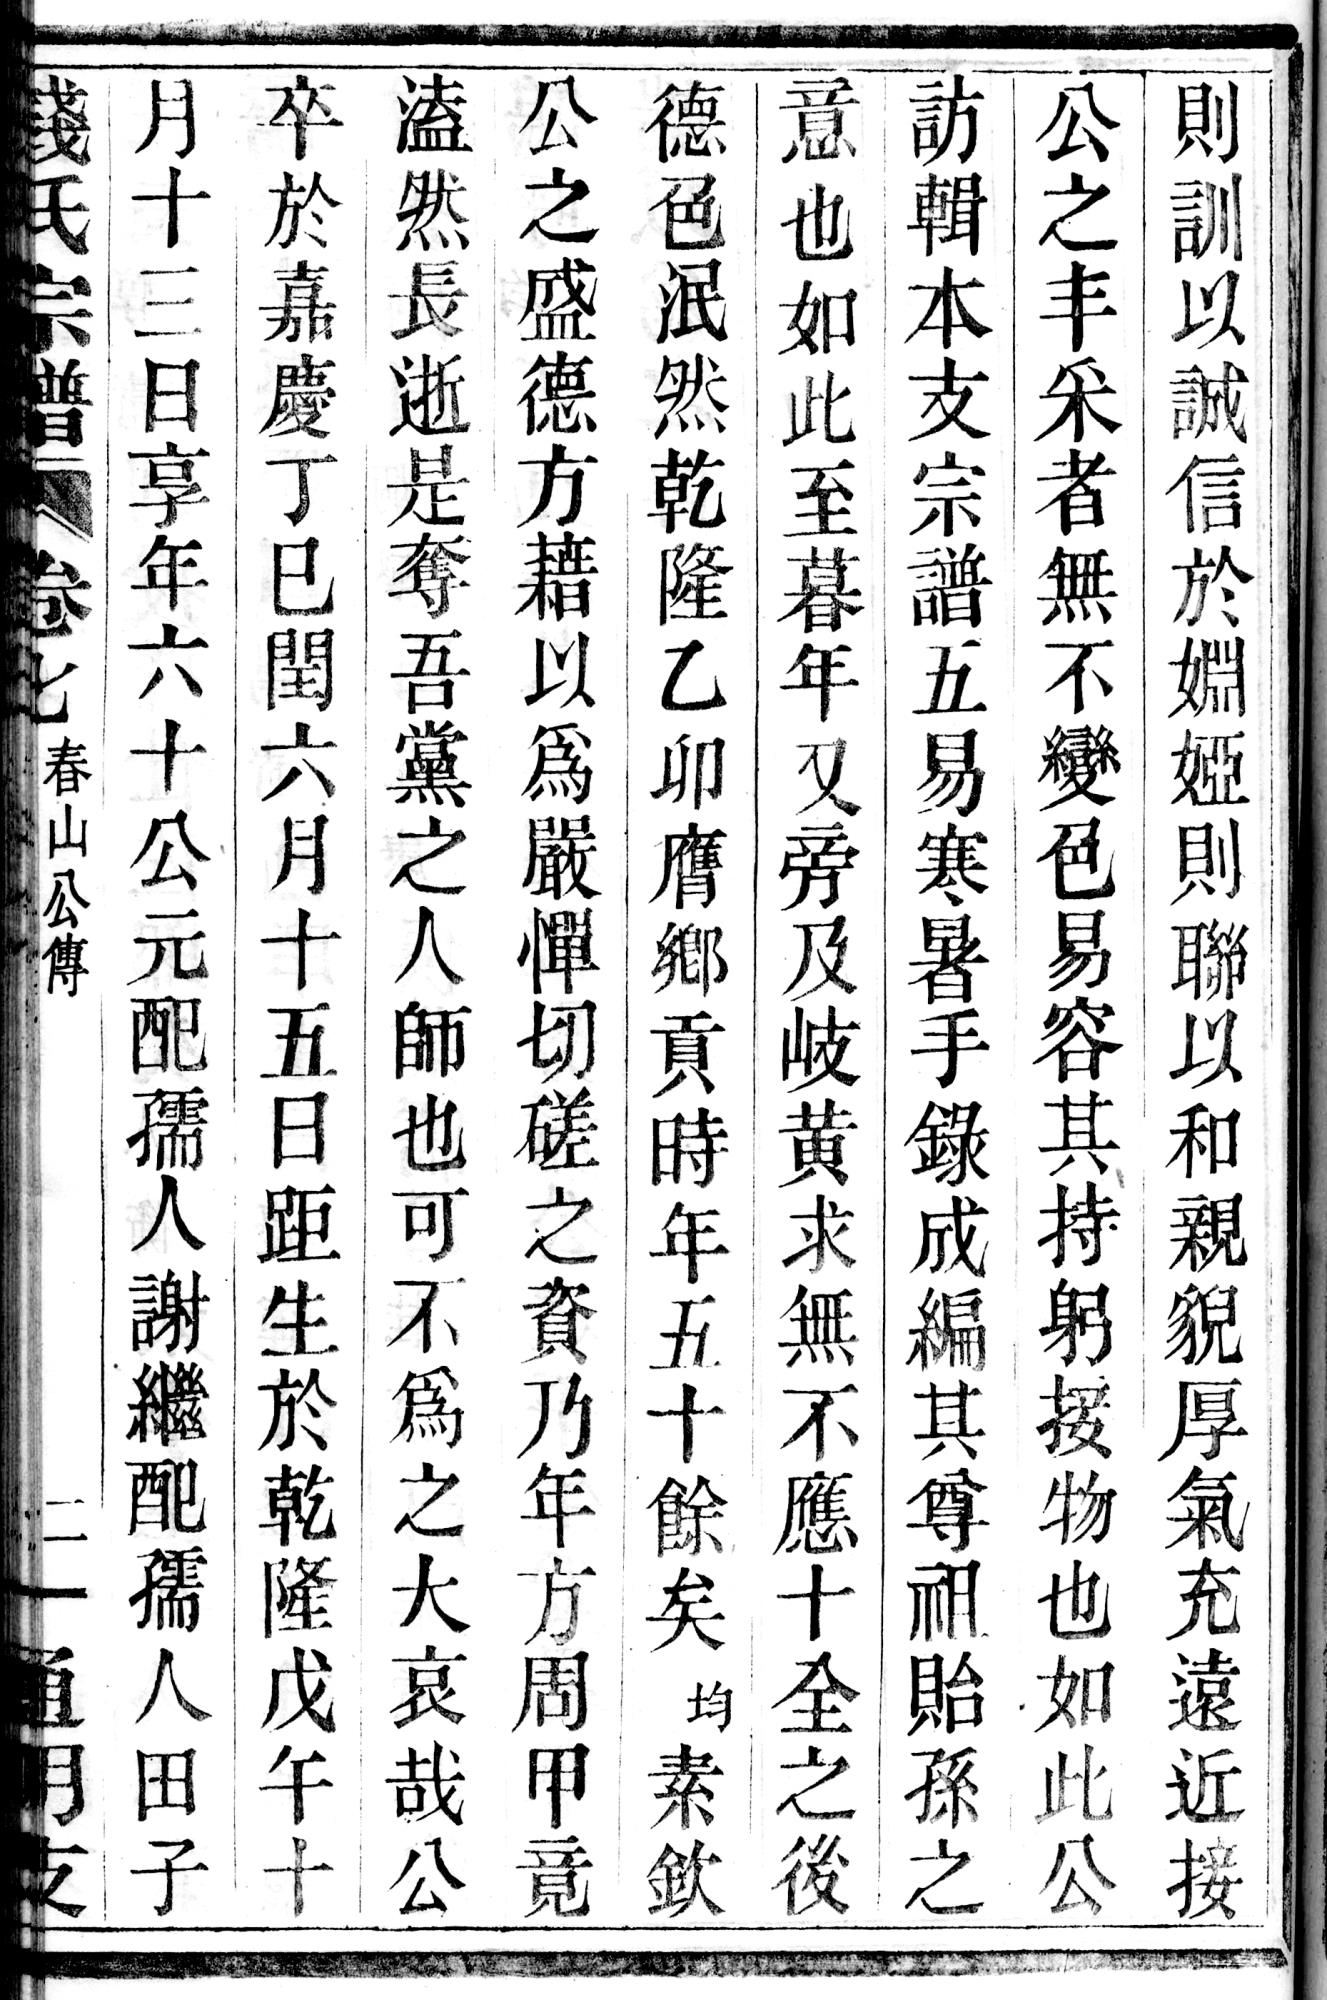 則訓以誠信於婣婭則聯以和親貌厚氣充遠近接
公之丰采者無不變色易容其持躬接物也如此公
訪輯本支宗譜五易寒暑手錄成編其尊祖貽孫之
意也如此至暮年又旁及岐黃求無不應十全之後
德色泯然乾隆乙卯膺鄉貢時年五十餘矣均素欽
公之盛德方藉以爲嚴憚切磋之資乃年方周甲竟
溘然長逝是奪吾黨之人師也可不爲之大哀哉公
卒於嘉慶丁巳閏六月十五日距生於乾隆戊午十
月十三日享年六十公元配孺人謝繼配孺人田子
錢氏宗譜 卷七 春山公傳 二 通明支